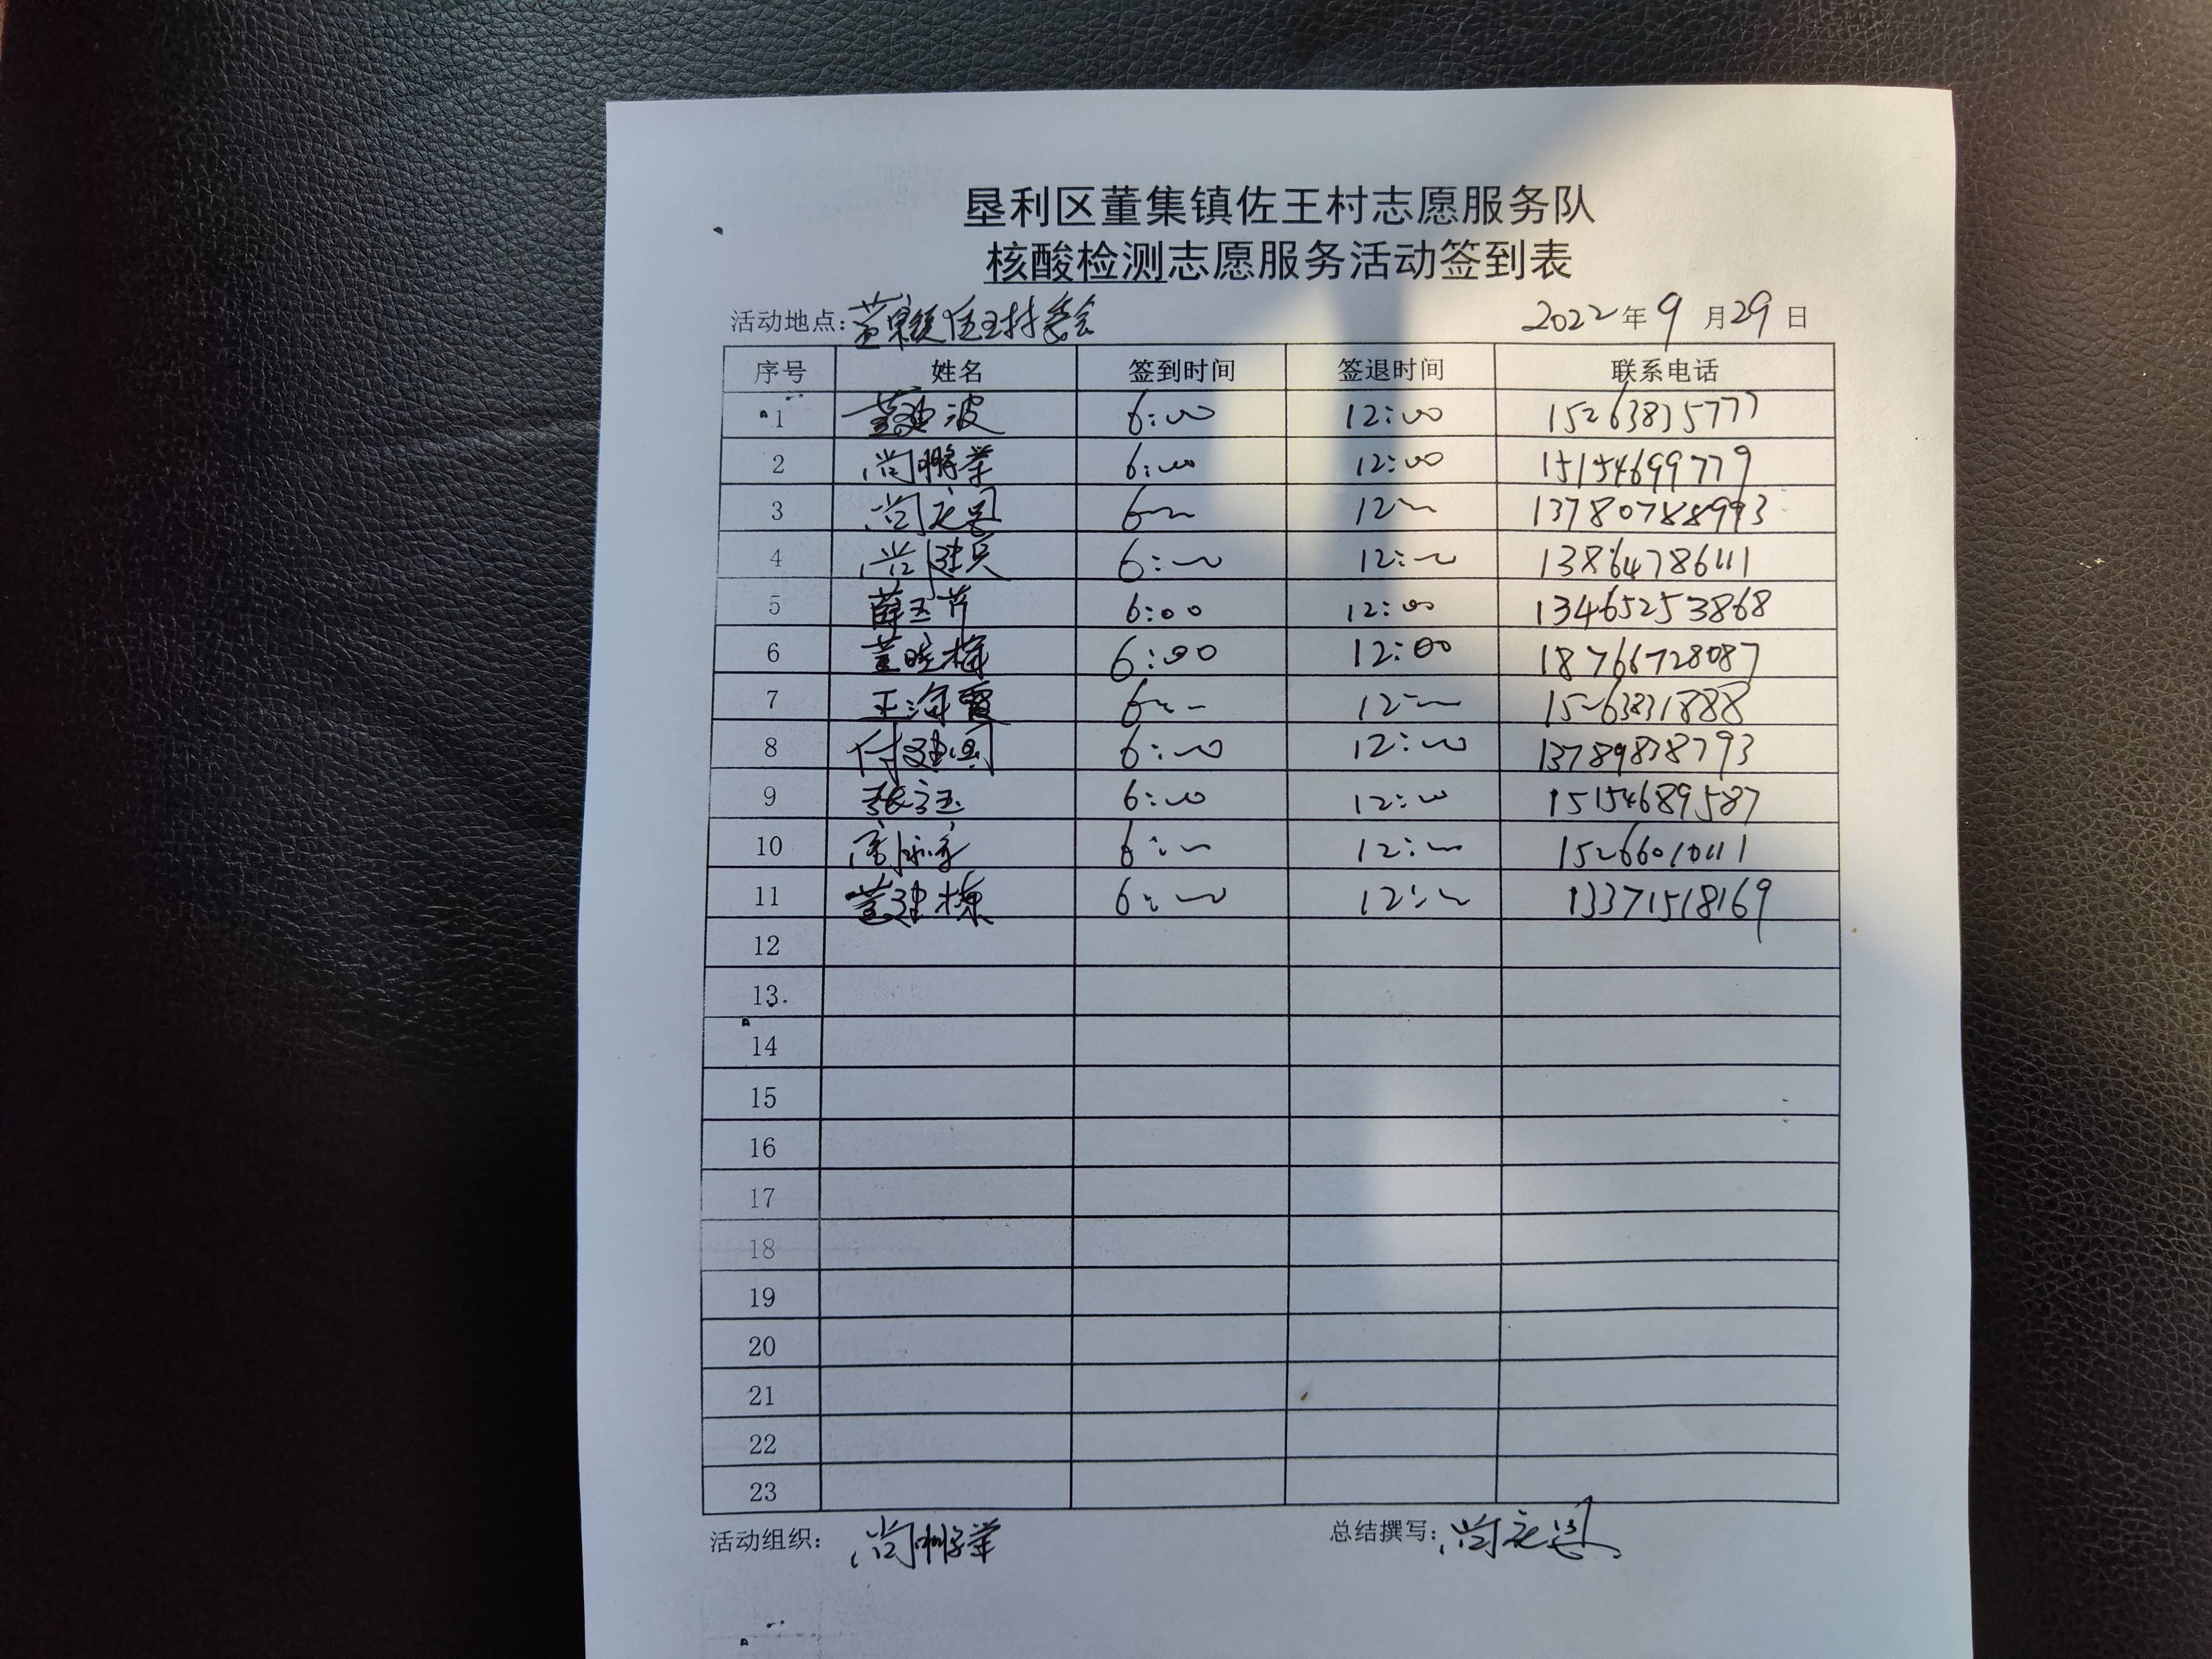 垦利区董集镇佐王村志愿服务队
核酸检测志愿服务活动签到表
活动地点：董集镇佐王村委会 2022年9月29日
序号 姓名 签到时间 签退时间 联系电话
1 董建波 6:00 12:00 15263835777
2 尚鹏举 6:00 12:00 15154699779
3 尚 6 12 13780788993
4 尚建民 6:00 12:00 13864786111
5 薛玉芳 6:00 12:00 13465253868
6 董晓梅 6:00 12:00 18766728087
7 王海霞 6 12 15263831888
8 付建国 6:00 12:00 13789838793
9 张 玉 6:00 12:00 15154689587
10 6:00 12:00 15266010111
11 董建栋 6:00 12:00 13371518169
12
13
14
15
16
17
18
19
20
21
22
23
活动组织：尚鹏举 总结撰写：尚